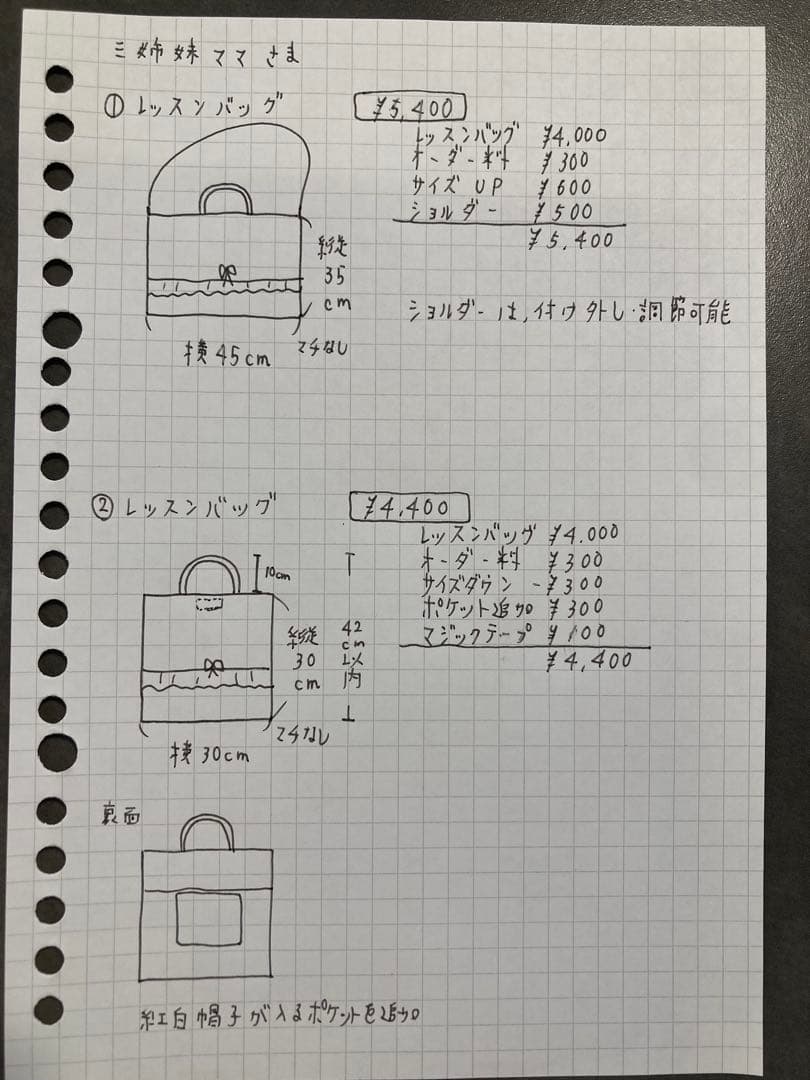 三姉妹ママさま
① レッスンバッグ ¥5,400
レッスンバッグ ¥4,000
オーダー料 ¥300
サイズUP ¥600
ショルダー ¥500
¥5,400
縦
35
cm
横45cm マチなし
ショルダーは,付け外し・調節可能
② レッスンバッグ ¥4,400
レッスンバッグ ¥4.000
オーダー料 ¥300
サイズダウン -¥300
ポケット追加 ¥300
マジックテープ ¥100
¥4,400
10cm
縦
30
cm
42
cm
以
内
横30cm マチなし
裏面
紅白帽子が入るポケットを追加